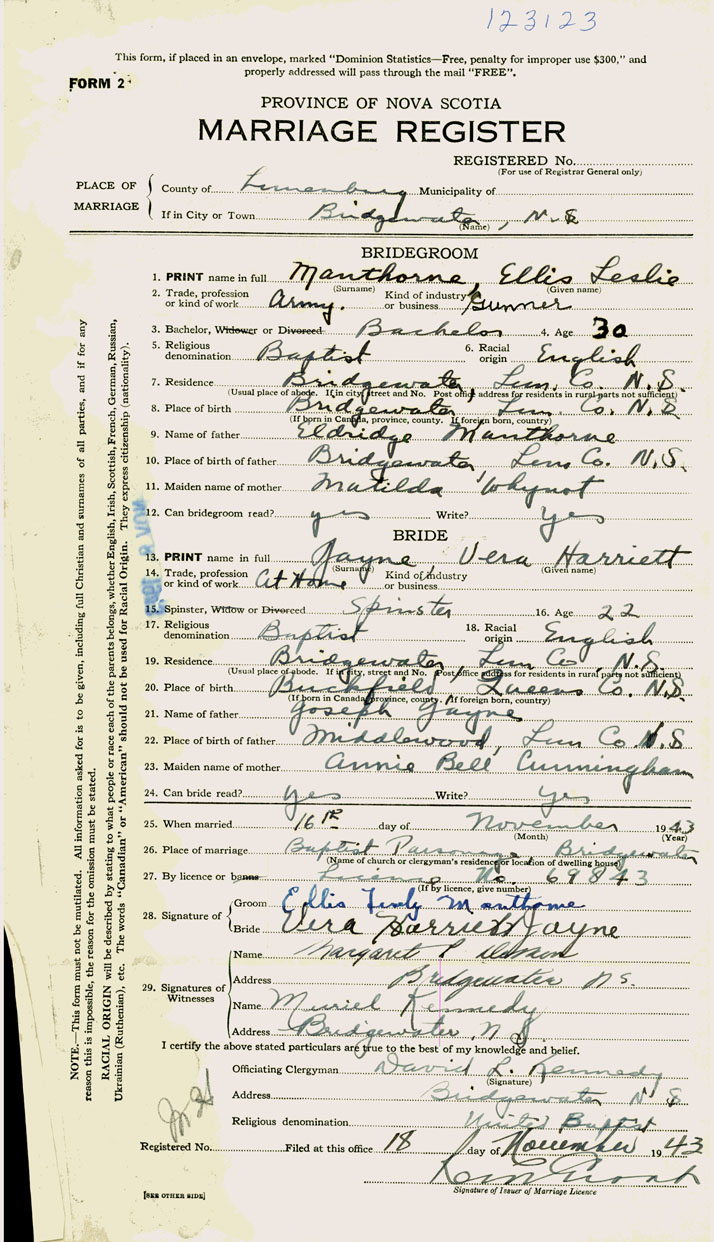 123123
This form, if placed in an envelope, marked "Dominion Statistics—Free, penalty for improper use $300," and
properly addressed will pass through the mail "FREE".
FORM 2
PROVINCE OF NOVA SCOTIA
MARRIAGE REGISTER
REGISTERED No.
(For use of Registrar General only)
PLACE OF MARRIAGE
County of Lunenburg Municipality of
If in City or Town Bridgewater, N.S.
(Name)
BRIDEGROOM
1. PRINT name in full Manthorne, Ellis Leslie
(Surname) (Given name)
2. Trade, profession or kind of work Army. Kind of industry or business Gunner
3. Bachelor, Widower or Divorced Bachelor 4. Age 30
5. Religious denomination Baptist 6. Racial origin English
7. Residence Bridgewater, Lun. Co. N.S.
(Usual place of abode. If in city, street and No. Post office address for residents in rural parts not sufficient)
8. Place of birth Bridgewater, Lun. Co. N.S.
(If born in Canada, province, county. If foreign born, country)
9. Name of father Eldridge Manthorne
10. Place of birth of father Bridgewater, Lun Co. N.S.
11. Maiden name of mother Matilda Whynot
12. Can bridegroom read? yes Write? yes
BRIDE
13. PRINT name in full Jayne, Vera Harriett
(Surname) (Given name)
14. Trade, profession or kind of work At Home Kind of industry or business
15. Spinster, Widow or Divorced Spinster 16. Age 22
17. Religious denomination Baptist 18. Racial origin English
19. Residence Bridgewater, Lun Co, N.S.
(Usual place of abode. If in city, street and No. Post office address for residents in rural parts not sufficient)
20. Place of birth Buckfield, Queens Co. N.S.
(If born in Canada, province, county. If foreign born, country)
21. Name of father Joseph Jayne
22. Place of birth of father Middlewood, Lun Co N.S
23. Maiden name of mother Annie Bell Cunningham
24. Can bride read? yes Write? yes
25. When married 16th day of November 1943
(Month) (Year)
26. Place of marriage Baptist Parsonage, Bridgewater
(Name of church or clergyman's residence or location of dwelling house)
27. By licence or banns Licence No. 69843
(If by licence, give number)
28. Signature of
Groom Ellis Manthorne
Bride Vera Harriett Jayne
29. Signatures of Witnesses
Name Margaret
Address Bridgewater N.S.
Name Muriel Kennedy
Address Bridgewater, N.S.
I certify the above stated particulars are true to the best of my knowledge and belief.
Officiating Clergyman David L. Kennedy
(Signature)
Address Bridgewater N S
Religious denomination United Baptist
Registered No. Filed at this office 18 day of November 1943
Signature of Issuer of Marriage Licence
[SEE OTHER SIDE]
NOTE.—This form must not be mutilated. All information asked for is to be given, including full Christian and surnames of all parties, and if for any
reason this is impossible, the reason for the omission must be stated.
RACIAL ORIGIN will be described by stating to what people or race each of the parents belongs, whether English, Irish, Scottish, French, German, Russian,
Ukrainian (Ruthenian), etc. The words "Canadian" or "American" should not be used for Racial Origin. They express citizenship (nationality).